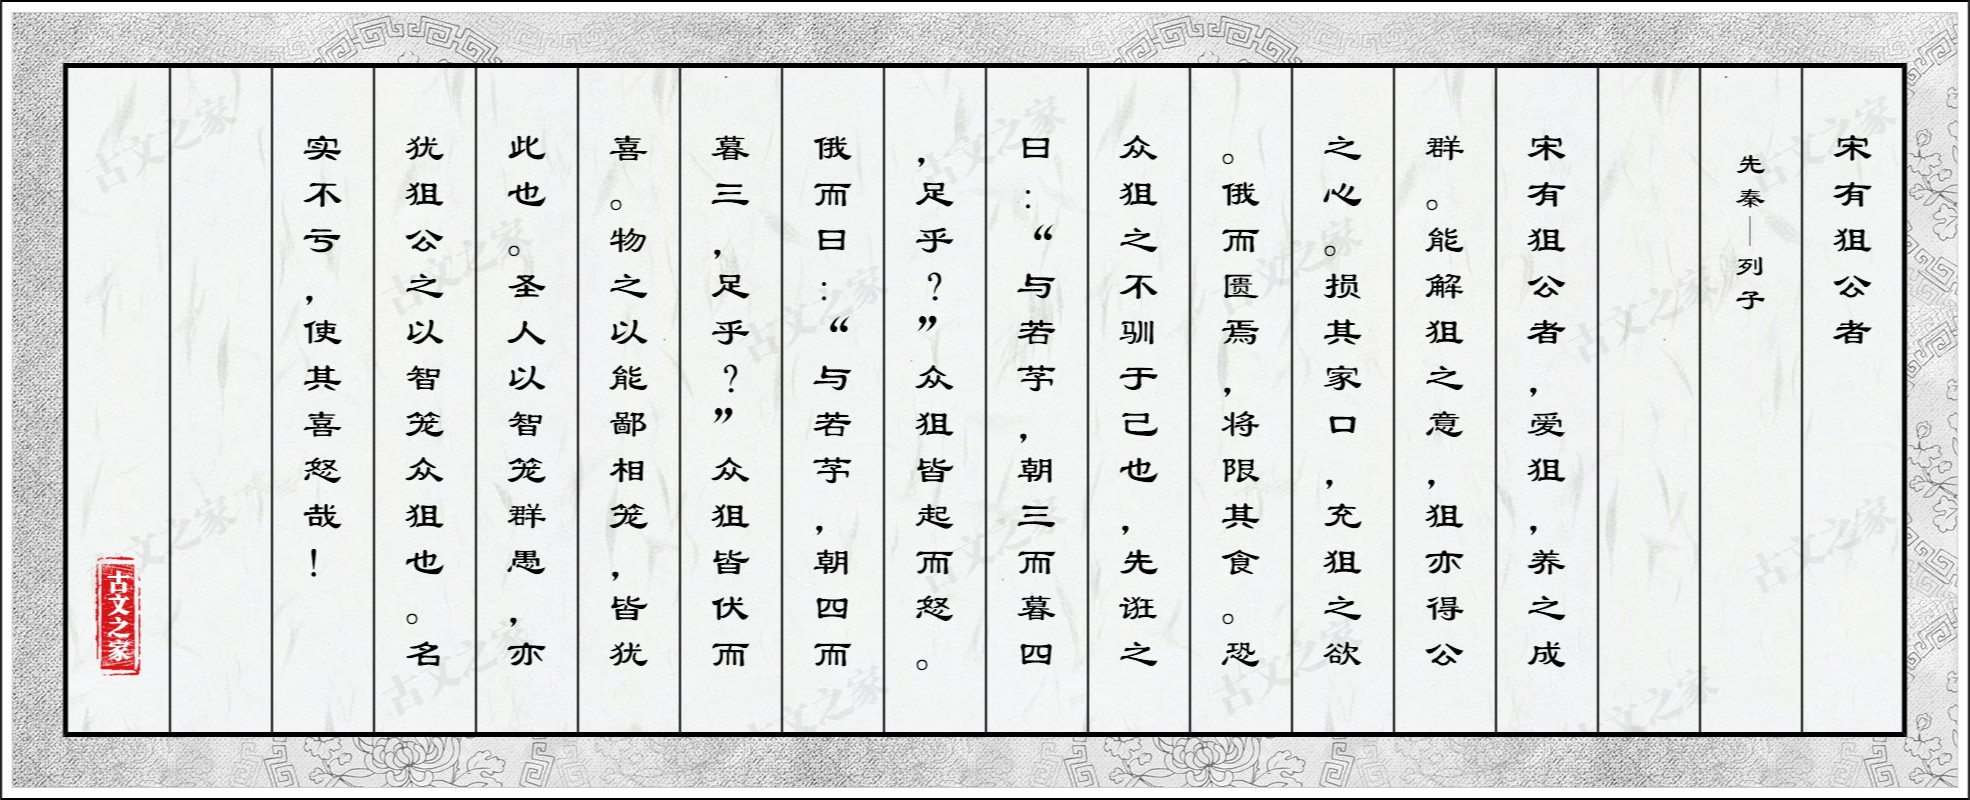 宋有狙公者
先秦—列子
宋有狙公者，爱狙，养之成
群。能解狙之意，狙亦得公
之心。损其家口，充狙之欲
。俄而匮焉，将限其食。恐
众狙之不驯于己也，先诳之
曰：“与若芧，朝三而暮四
，足乎？”众狙皆起而怒。
俄而曰：“与若芧，朝四而
暮三，足乎？”众狙皆伏而
喜。物之以能鄙相笼，皆犹
此也。圣人以智笼群愚，亦
犹狙公之以智笼众狙也。名
实不亏，使其喜怒哉！
古文之家